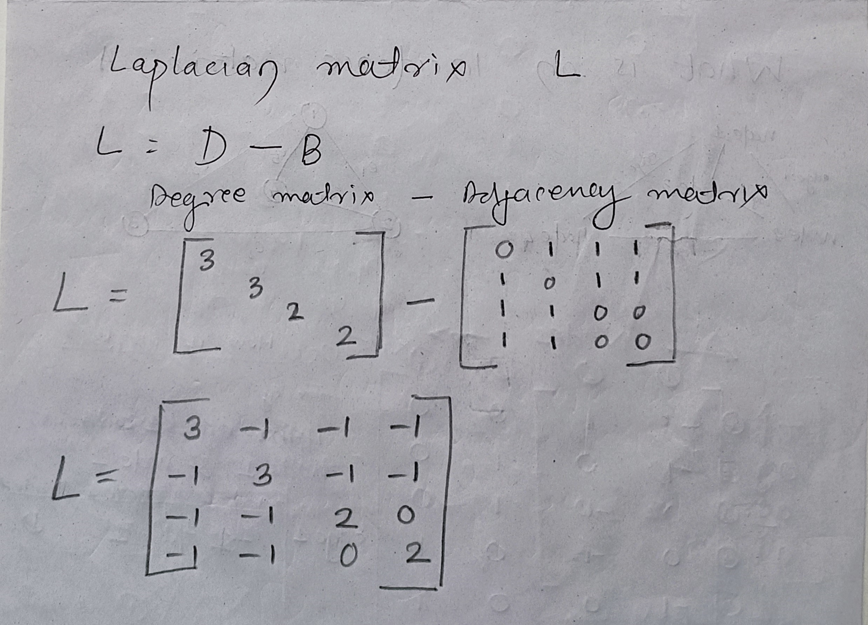 Laplacian matrix L
L = D - B
Degree matrix - Adjacency matrix
L = [3 3 2 2] - [0 1 1 1
1 0 1 1
1 1 0 0
1 1 0 0]
L = [3 -1 -1 -1
-1 3 -1 -1
-1 -1 2 0
-1 -1 0 2]